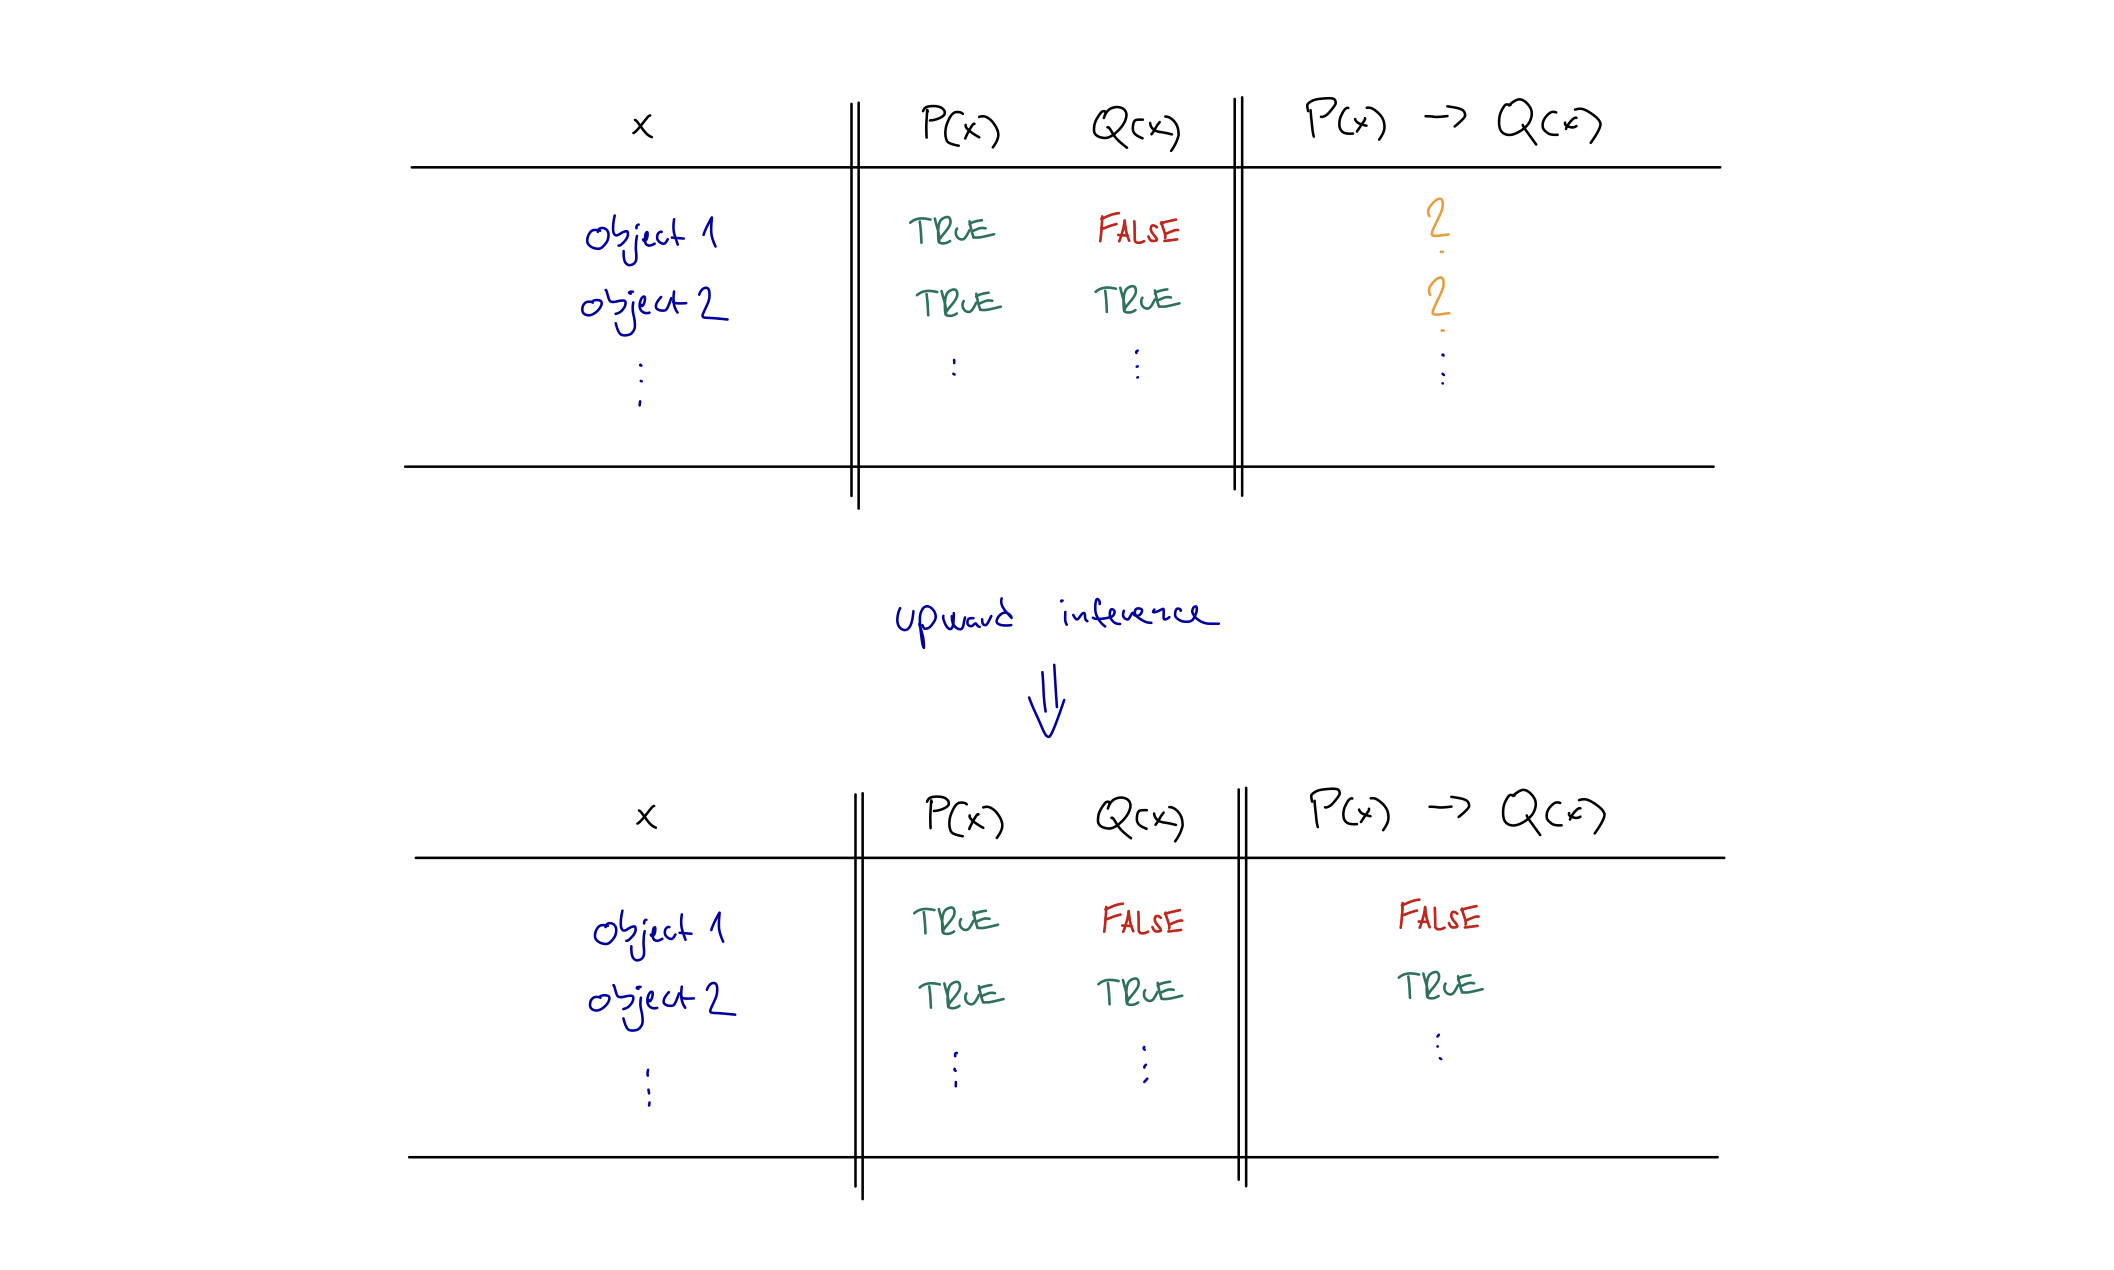 x P(x) Q(x) P(x) → Q(x)
object 1 TRUE FALSE ?
object 2 TRUE TRUE ?
⋮ : ⋮ ⋮
upward inference
⇓
x P(x) Q(x) P(x) → Q(x)
object 1 TRUE FALSE FALSE
object 2 TRUE TRUE TRUE
⋮ ⋮ ⋮ ⋮